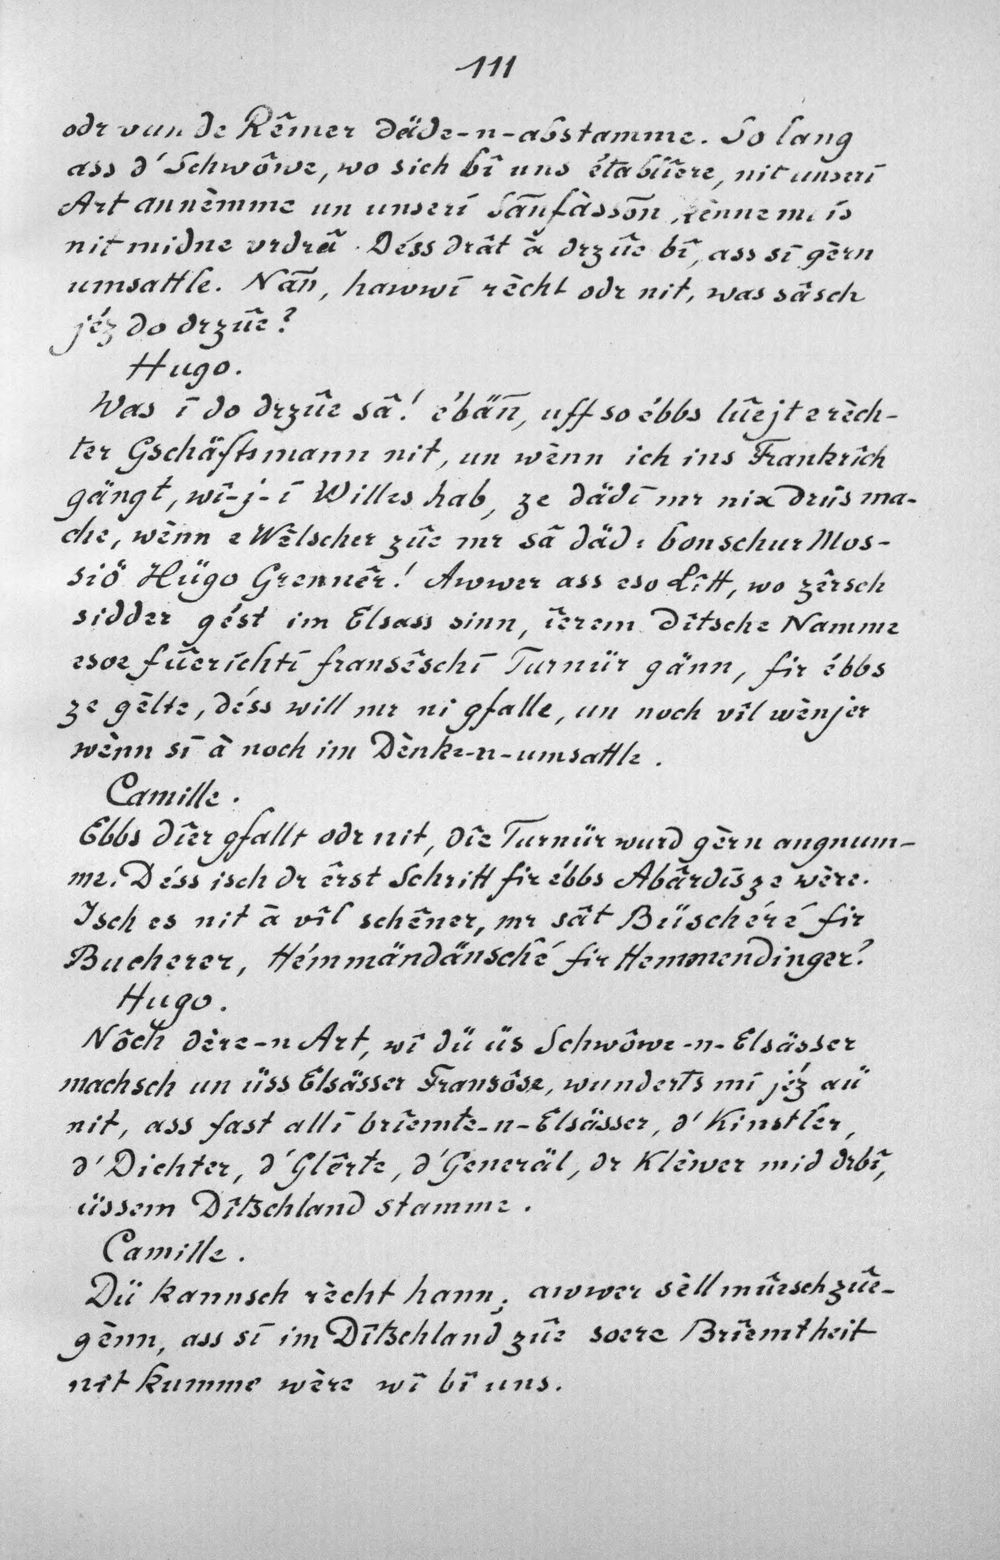 111
odr vun de Rêmer däde-n-abstamme. So lang
ass d'Schwôwe, wo sich bî uns établîere, nit unseri
Art annèmme un unserí Sãnfàssõn, kènne mr ís
nit midne vrdrâ. Déss drât à drzûe bî, ass sī gèrn
umsattle. Nãn, hawwī rècht odr nit, was sâsch
jéz do drzûe?
Hugo.
Was ī do drzûe sâ! é'bän̄, uff so ébbs lûejt e rèch-
ter Gschäftsmann nit, un wènn ich ins Frankrîch
gängt, wī-j-ī Willes hab, ze dädī mr nix drüs ma-
che, wènn e Wèlscher zûe mr sâ däd: bonschur Mos-
siö Hügo Grennêr! Awwer ass eso Lîtt, wo zêrsch
sidder gést im Elsass sinn, îerem dîtsche Namme
esoe fûerichtī fransêschī Turnür gänn, fir ébbs
ze gèlte, déss will mr ni gfalle, un noch vîl wènjer
wènn sī à noch im Dènke-n-umsattle.
Camille.
Ebbs dîer gfallt odr nit, dîe Turnür wurd gèrn angnum-
me. Déss isch dr êrst Schritt fir ébbs Abârdīs ze wère.
Isch es nit à vîl schêner, mr sât Büschéré fir
Bucherer, Hémmändänsché fir Hemmendinger?
Hugo.
Nôch dère-n Art, wī dü üs Schwôwe-n-Elsässer
machsch un üss Elsässer Fransôse, wunderts mī jéz aü
nit, ass fast allī brîemte-n-Elsässer, d'Kinstler,
d'Dichter, d'Glêrte, d'Generäl, dr Klèwer mid drbî,
üssem Dîtschland stamme.
Camille.
Dü kannsch rècht hann; awwer sèll mûesch zûe-
gènn, ass sī im Dîtschland zûe soere Brîemtheit
nit kumme wère wī bî uns.